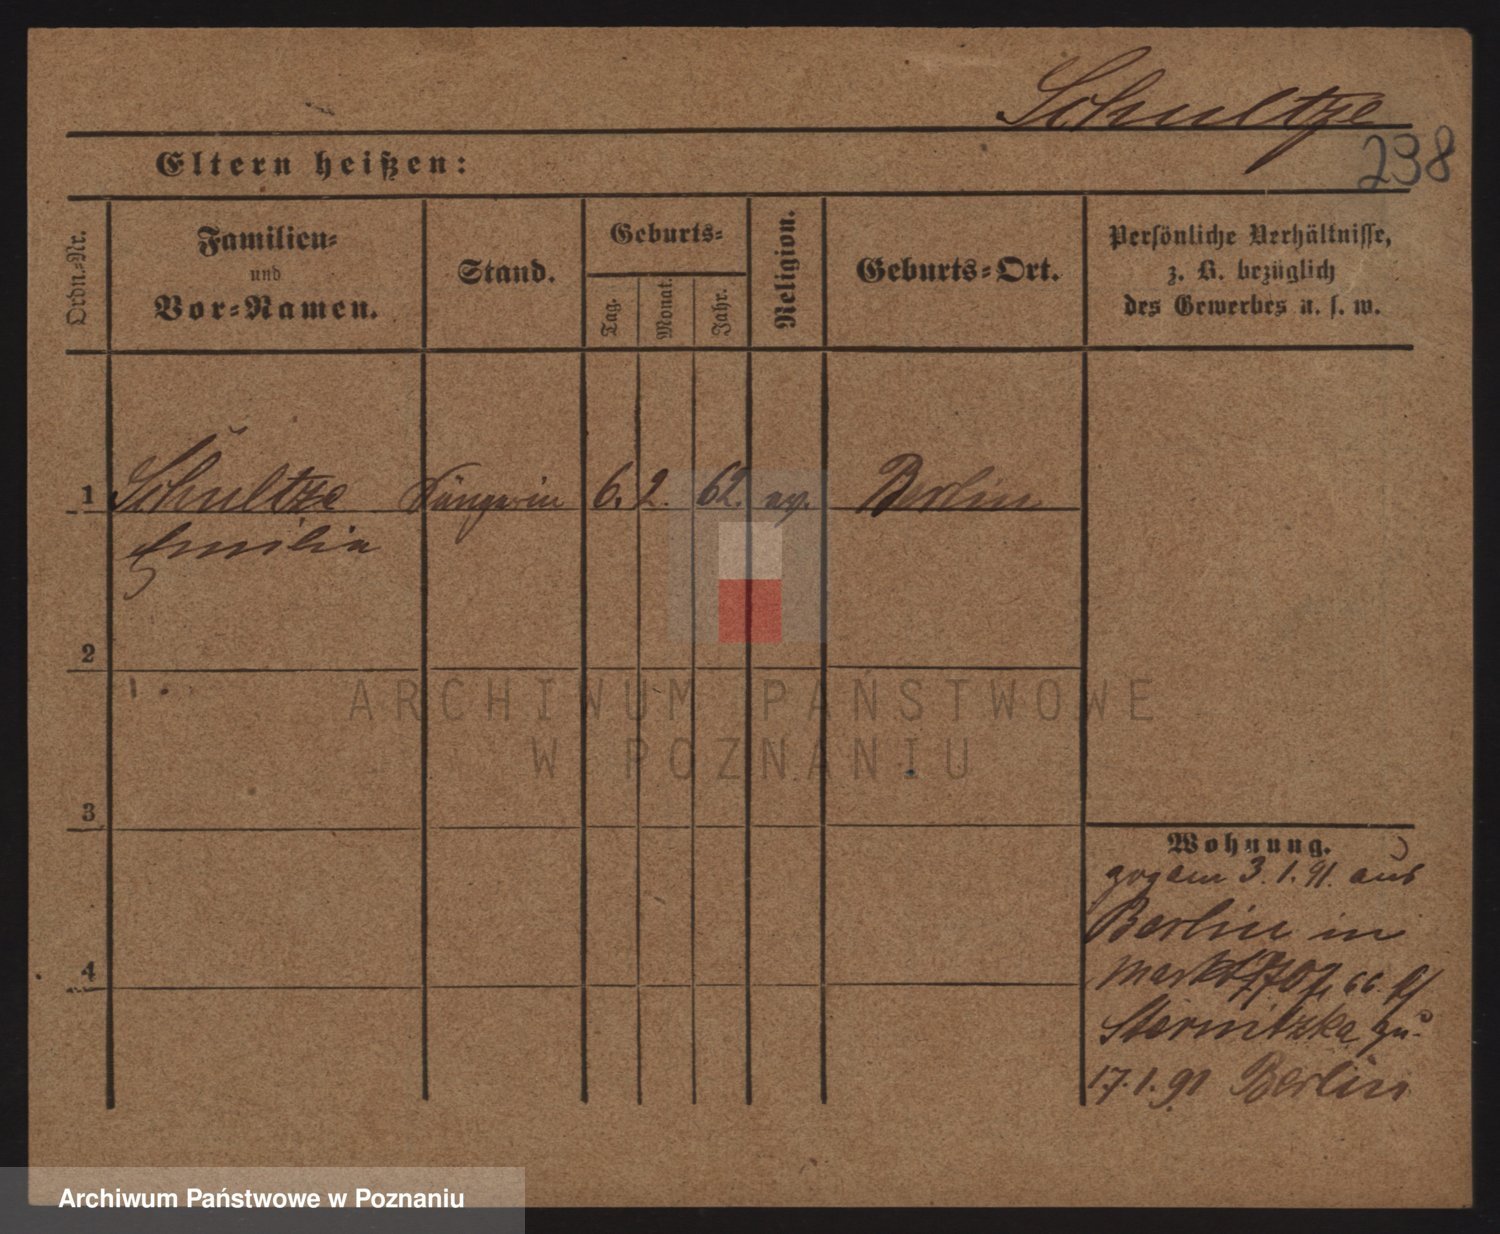 Schultze
238
Eltern heißen:
Ordn.-Nr.
Familien-
und
Vor-Namen.
Stand.
Geburts-
Tag.
Monat.
Jahr.
Religion.
Geburts-Ort.
Persönliche Verhältnisse,
z. B. bezüglich
des Gewerbes u. s. w.
1 Schultze Sängerin 6. 2. 62. ev. Berlin
Emilie
2
3
4
Wohnung.
3. 1. 91. aus
Berlin in
66
Sternitzke
17. 1. 91 Berlin
ARCHIWUM PAŃSTWOWE
W POZNANIU
Archiwum Państwowe w Poznaniu